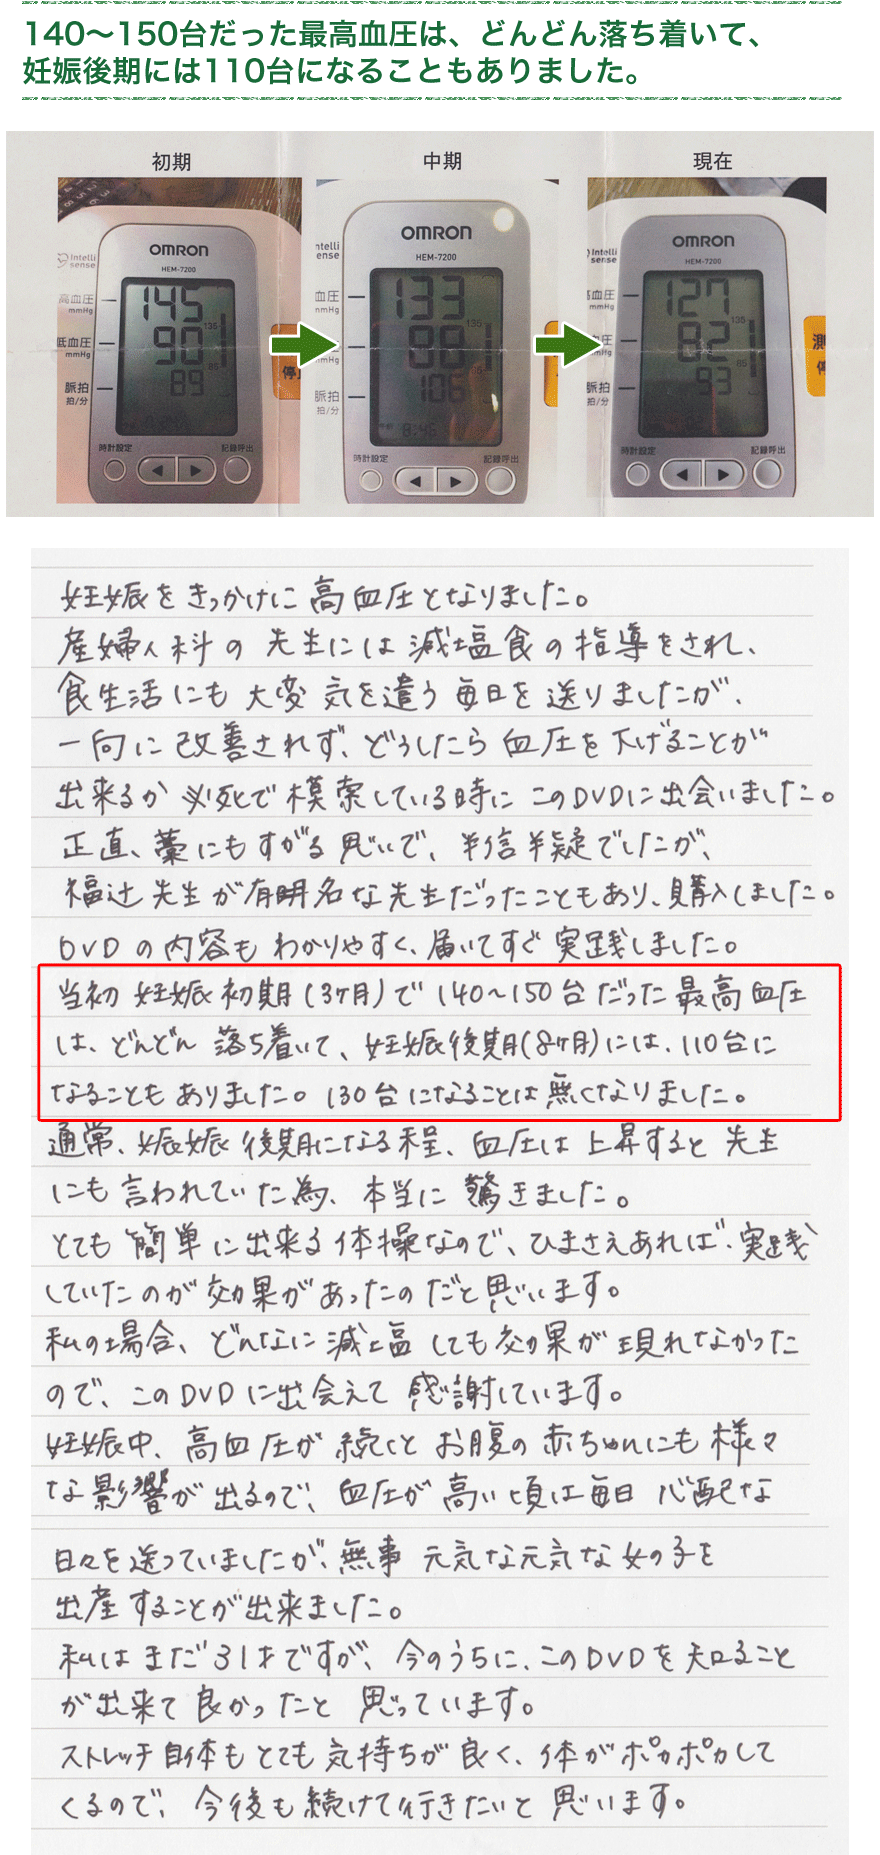 140〜150台だった最高血圧は、どんどん落ち着いて、
妊娠後期には110台になることもありました。
初期
中期
現在
OMRON
HEM-7200
Intelli
sense
高血圧
mmHg
145
135
低血圧
mmHg
90
85
脈拍
拍/分
89
時計設定
記録呼出
OMRON
HEM-7200
ntelli
ense
血圧
mmHg
133
135
mmHg
88
85
脈拍
拍/分
106
8:46
時計設定
記録呼出
OMRON
HEM-7200
Intelli
sense
高血圧
mmHg
127
135
血圧
mmHg
82
85
脈拍
拍/分
93
測
時計設定
記録呼出
妊娠をきっかけに高血圧となりました。
産婦人科の先生には減塩食の指導をされ、
食生活にも大変気を遣う毎日を送りましたが、
一向に改善されず、どうしたら血圧を下げることが
出来るか必死で模索している時にこのDVDに出会いました。
正直、藁にもすがる思いで、半信半疑でしたが、
福辻先生が有明名な先生だったこともあり、購入しました。
DVDの内容もわかりやすく、届いてすぐ実践しました。
当初妊娠初期(3ヶ月)で140〜150台だった最高血圧
は、どんどん落ち着いて、妊娠後期(8ヶ月)には、110台に
なることもありました。130台になることは無くなりました。
通常、娠娠後期になる程、血圧は上昇すると先生
にも言われていた為、本当に驚きました。
とても簡単に出来る体操なので、ひまさえあれば、実践
していたのが効果があったのだと思います。
私の場合、どんなに減塩しても効果が現れなかった
ので、このDVDに出会えて感謝しています。
妊娠中、高血圧が続くとお腹の赤ちゃんにも様々
な影響が出るので、血圧が高い頃は毎日心配な
日々を送っていましたが、無事元気な元気な女の子を
出産することが出来ました。
私はまだ31才ですが、今のうちに、このDVDを知ること
が出来て良かったと思っています。
ストレッチ自体もとても気持ちが良く、体がポカポカして
くるので、今後も続けて行きたいと思います。